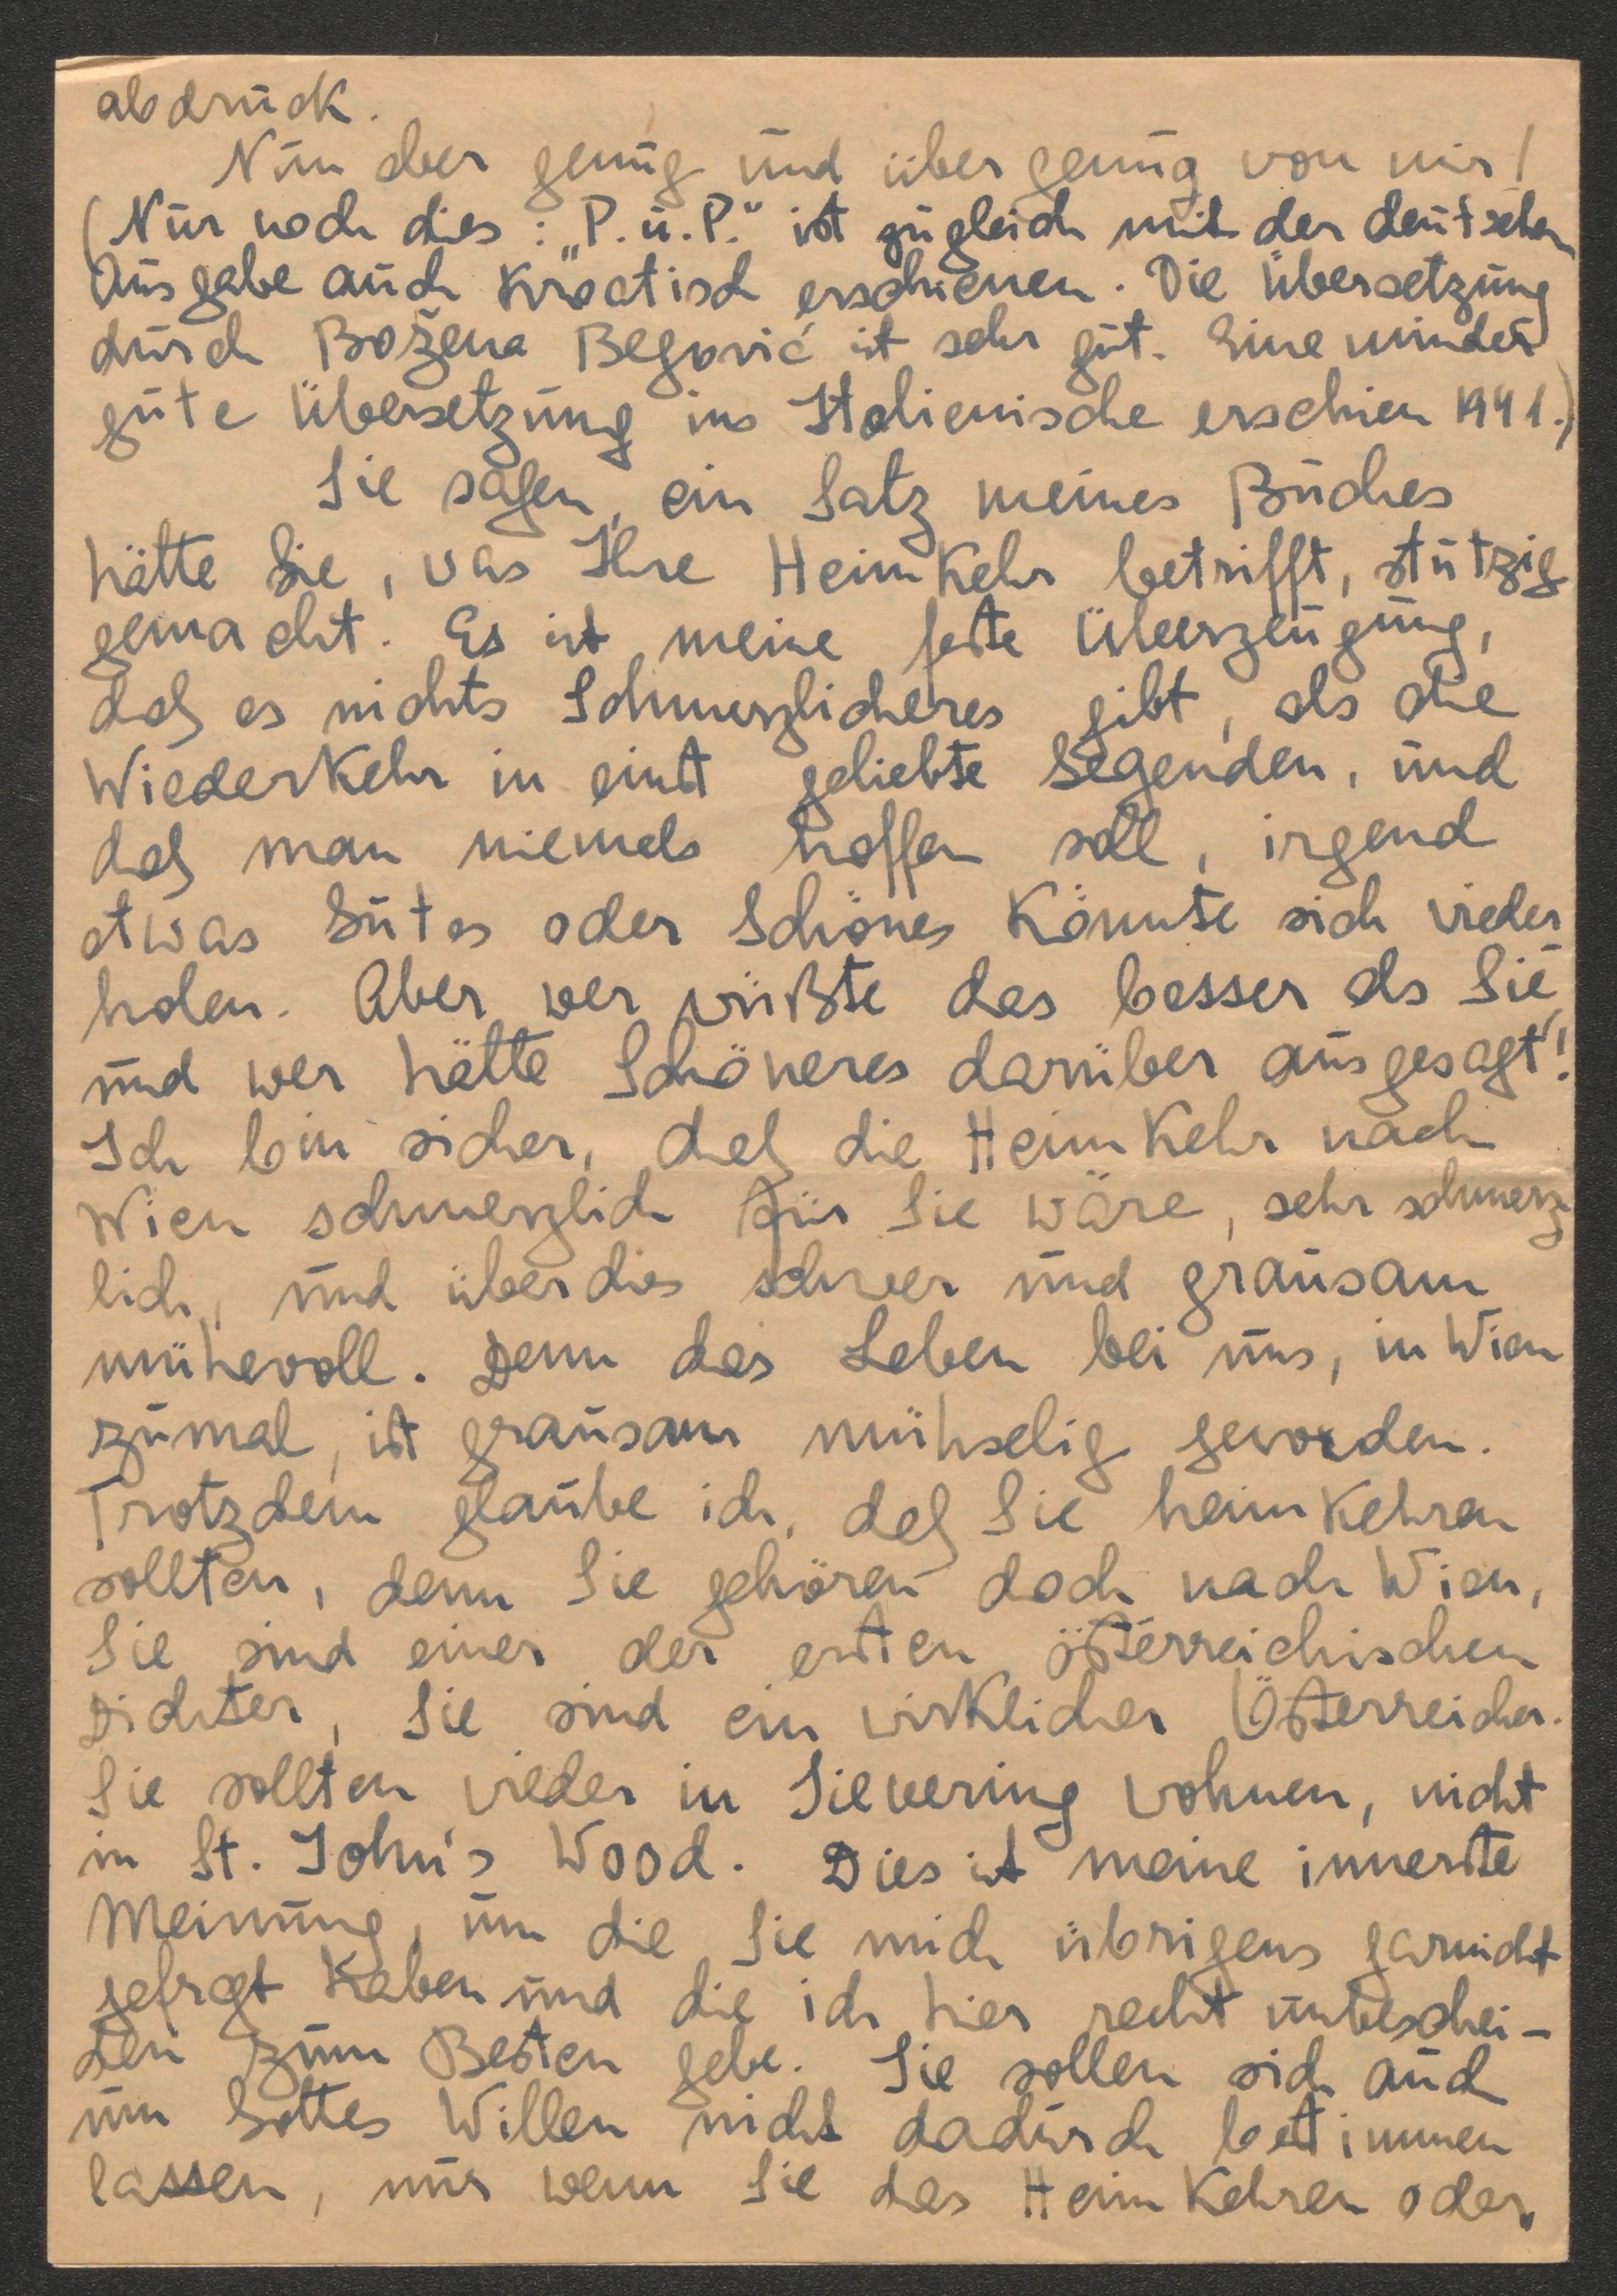 abdruck.
Nun aber genug und übergenug von mir!
(Nur noch dies: „P. u. P." ist zugleich mit der deutschen
Ausgabe auch Kroatisch erschienen. Die Übersetzung
durch Božena Begović ist sehr gut. Eine minder
gute Übersetzung ins Italienische erschien 1941.)
Sie sagen, ein Satz meines Buches
hätte Sie, was Ihre Heimkehr betrifft, stutzig
gemacht. Es ist meine feste Überzeugung,
daß es nichts Schmerzlicheres gibt, als die
Wiederkehr in einst geliebte Gegenden, und
daß man niemals hoffen soll, irgend
etwas Gutes oder Schönes könnte sich wieder
holen. Aber wer wüßte das besser als Sie,
und wer hätte Schöneres darüber ausgesagt!
Ich bin sicher, daß die Heimkehr nach
Wien schmerzlich für Sie wäre, sehr schmerz
lich, und überdies schwer und grausam
mühevoll. Denn das Leben bei uns, in Wien
zumal, ist grausam mühselig geworden.
Trotzdem glaube ich, daß Sie heimkehren
sollten, denn Sie gehören doch nach Wien,
Sie sind einer der ersten österreichischen
Dichter, Sie sind ein wirklicher Österreicher.
Sie sollten wieder in Sievering wohnen, nicht
in St. John's Wood. Dies ist meine innerste
Meinung, um die Sie mich übrigens garnicht
gefragt haben und die ich hier recht unbeschei-
den zum Besten gebe. Sie sollen sich auch
um Gottes Willen nicht dadurch bestimmen
lassen, nur wenn Sie das Heimkehren oder